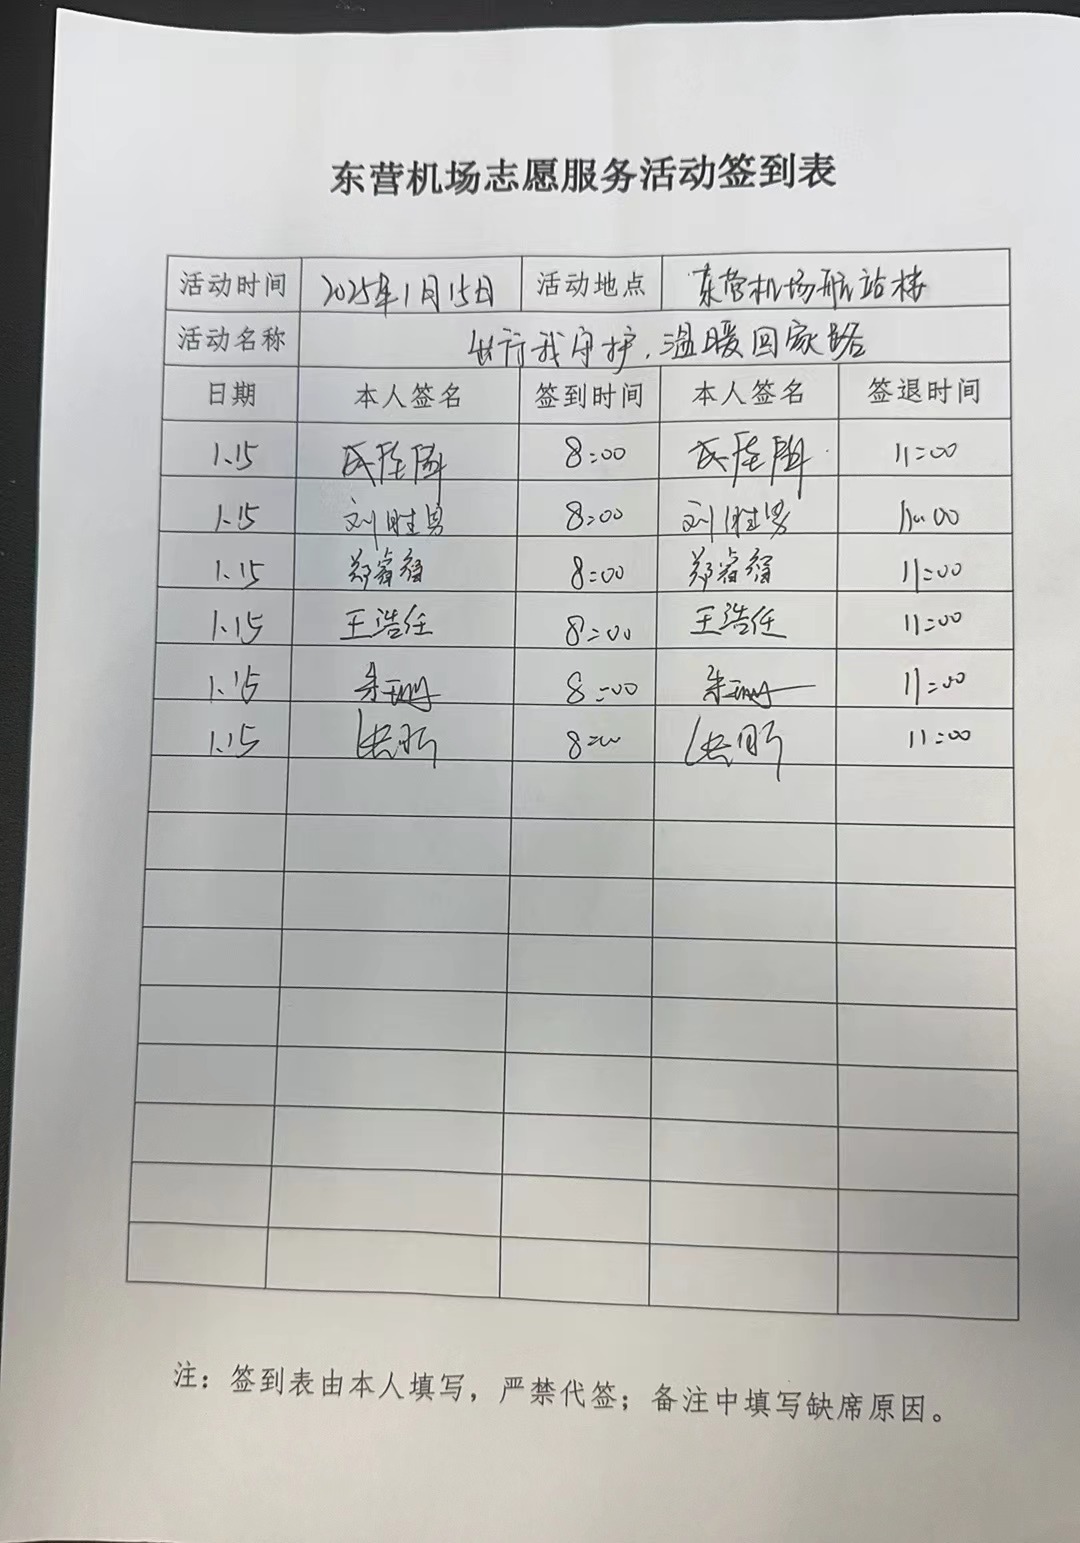 东营机场志愿服务活动签到表
活动时间 2025年1月15日 活动地点 东营机场航站楼
活动名称 出行我守护，温暖回家路
日期 本人签名 签到时间 本人签名 签退时间
1.15 8:00 11:00
1.15 刘胜男 8:00 刘胜男 11:00
1.15 郑睿 8:00 郑睿 11:00
1.15 王浩任 8:00 王浩任 11:00
1.15 朱珊 8:00 朱珊 11:00
1.15 8:00 11:00
注：签到表由本人填写，严禁代签；备注中填写缺席原因。